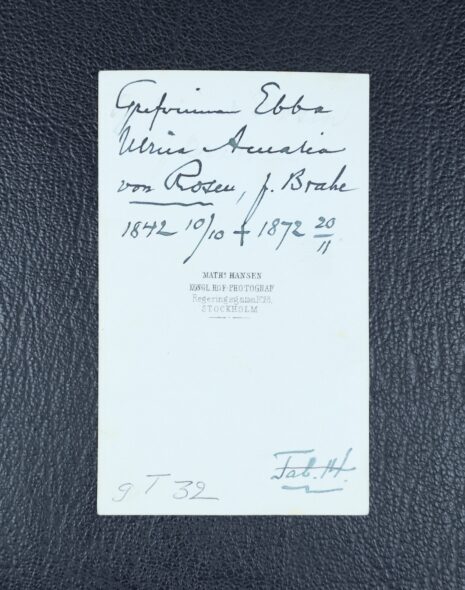 Grefvinnan Ebba
Ulrica Amalia
von Rosen, f. Brahe
1842 10/10 + 1872 20/11
MATHS HANSEN
KONGL. HOF-PHOTOGRAF
Regeringsgatan No 28.
STOCKHOLM
Fab. H.
9 T 32